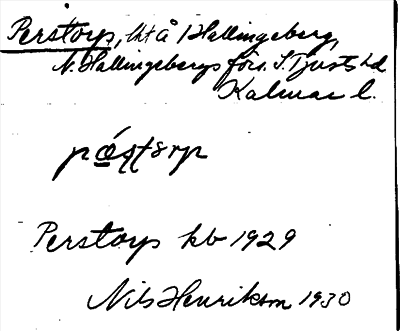 Perstorp, ht å Hallingeberg,
N. Hallingebergs förs. S. Tjusts hd
Kalmar l.
Perstorp kb 1929
Nils Henrikson 1930